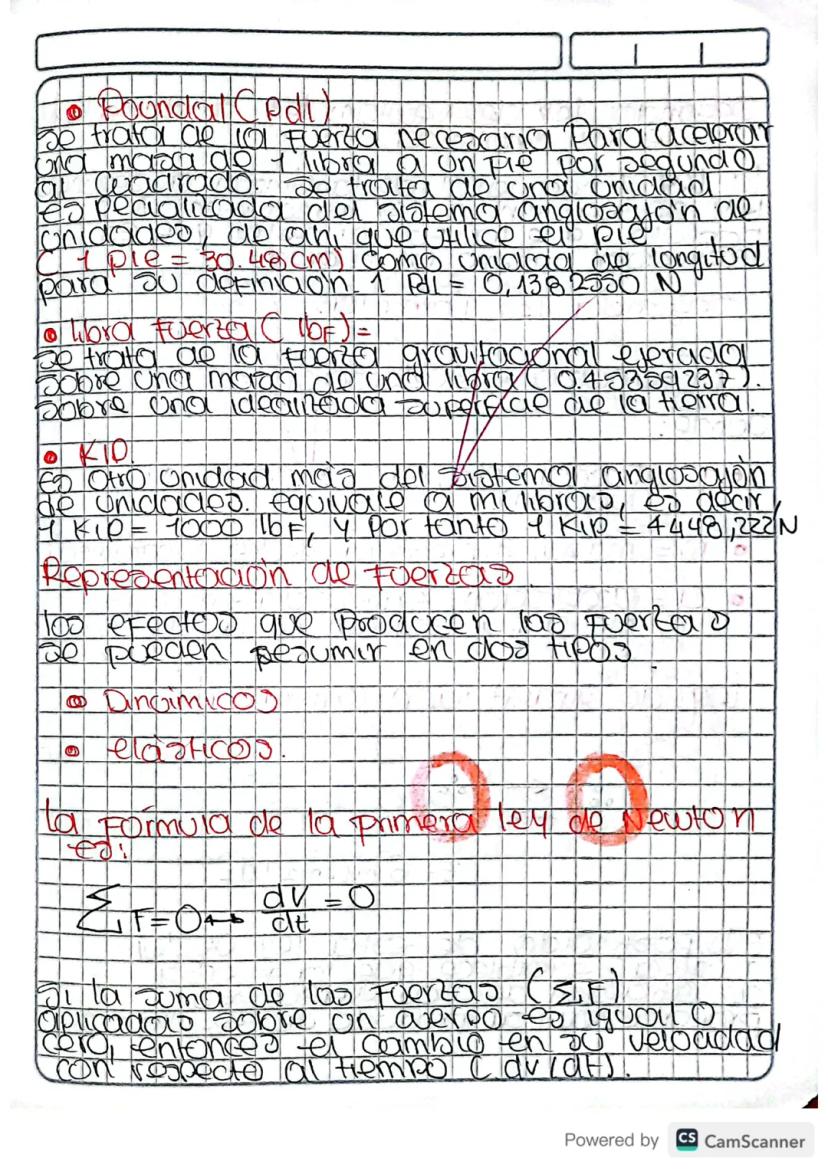 • Poundal (Pdl)
Se trata de la fuerza necesaria Para acelerar
una masa de 1 libra a un pie por segundo
al cuadrado. Se trata de una unidad
especializada del sistema anglosajón de
unidades, de ahí que utilice el pie
( 1 pie = 30.48 cm) como unidad de longitud
para su definición. 1 Pdl = 0,1382550 N
• libra fuerza ( lbF) =
Se trata de la fuerza gravitacional ejercida
sobre una masa de una libra ( 0.45359237).
sobre una idealizada superficie de la tierra.
• KIP
Es otro unidad más del sistema anglosajón
de unidades. equivale a mil libras, es decir,
1 KIP = 1000 lbF, y Por tanto 1 KIP = 4448,222 N
Representación de Fuerzas.
los efectos que Producen las fuerzas
se pueden resumir en dos tipos
• Dinámicos
• elásticos.
La Fórmula de la primera ley de Newton
es:
∑ F = 0 ↔ dV/dt = 0
Si la suma de las Fuerzas (∑ F)
aplicadas sobre un cuerpo es igual 0
cero, entonces el cambio en su velocidad
con respecto al tiempo ( dv/dt).
Powered by CS CamScanner